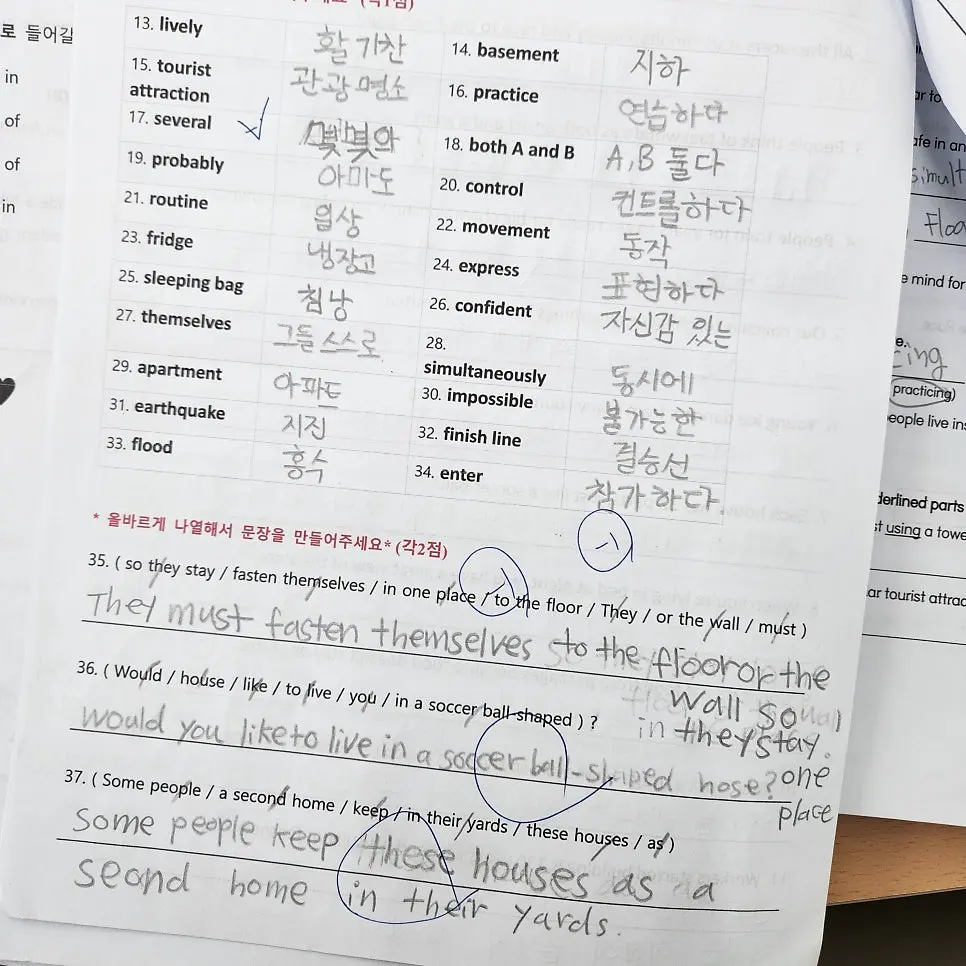 로 들어갈
in
of
of
in
13. lively 활기찬 14. basement 지하
15. tourist attraction 관광명소 16. practice 연습하다
17. several 몇몇의 18. both A and B A,B 둘다
19. probably 아마도 20. control 컨트롤하다
21. routine 일상 22. movement 동작
23. fridge 냉장고 24. express 표현하다
25. sleeping bag 침낭 26. confident 자신감 있는
27. themselves 그들 스스로 28. simultaneously 동시에
29. apartment 아파트 30. impossible 불가능한
31. earthquake 지진 32. finish line 결승선
33. flood 홍수 34. enter 참가하다
-1
* 올바르게 나열해서 문장을 만들어주세요* (각2점)
35. ( so they stay / fasten themselves / in one place / to the floor / They / or the wall / must )
They must fasten themselves to the floor or the
wall so
in they stay.
one
place
36. ( Would / house / like / to live / you / in a soccer ball-shaped ) ?
would you like to live in a soccer ball-shaped hose?
37. ( Some people / a second home / keep / in their yards / these houses / as )
Some people keep these houses as a
seond home in their yards.
simult
Floo
e mind for
cing
practicing)
eople live in
derlined parts
t using a towe
ar tourist attrac